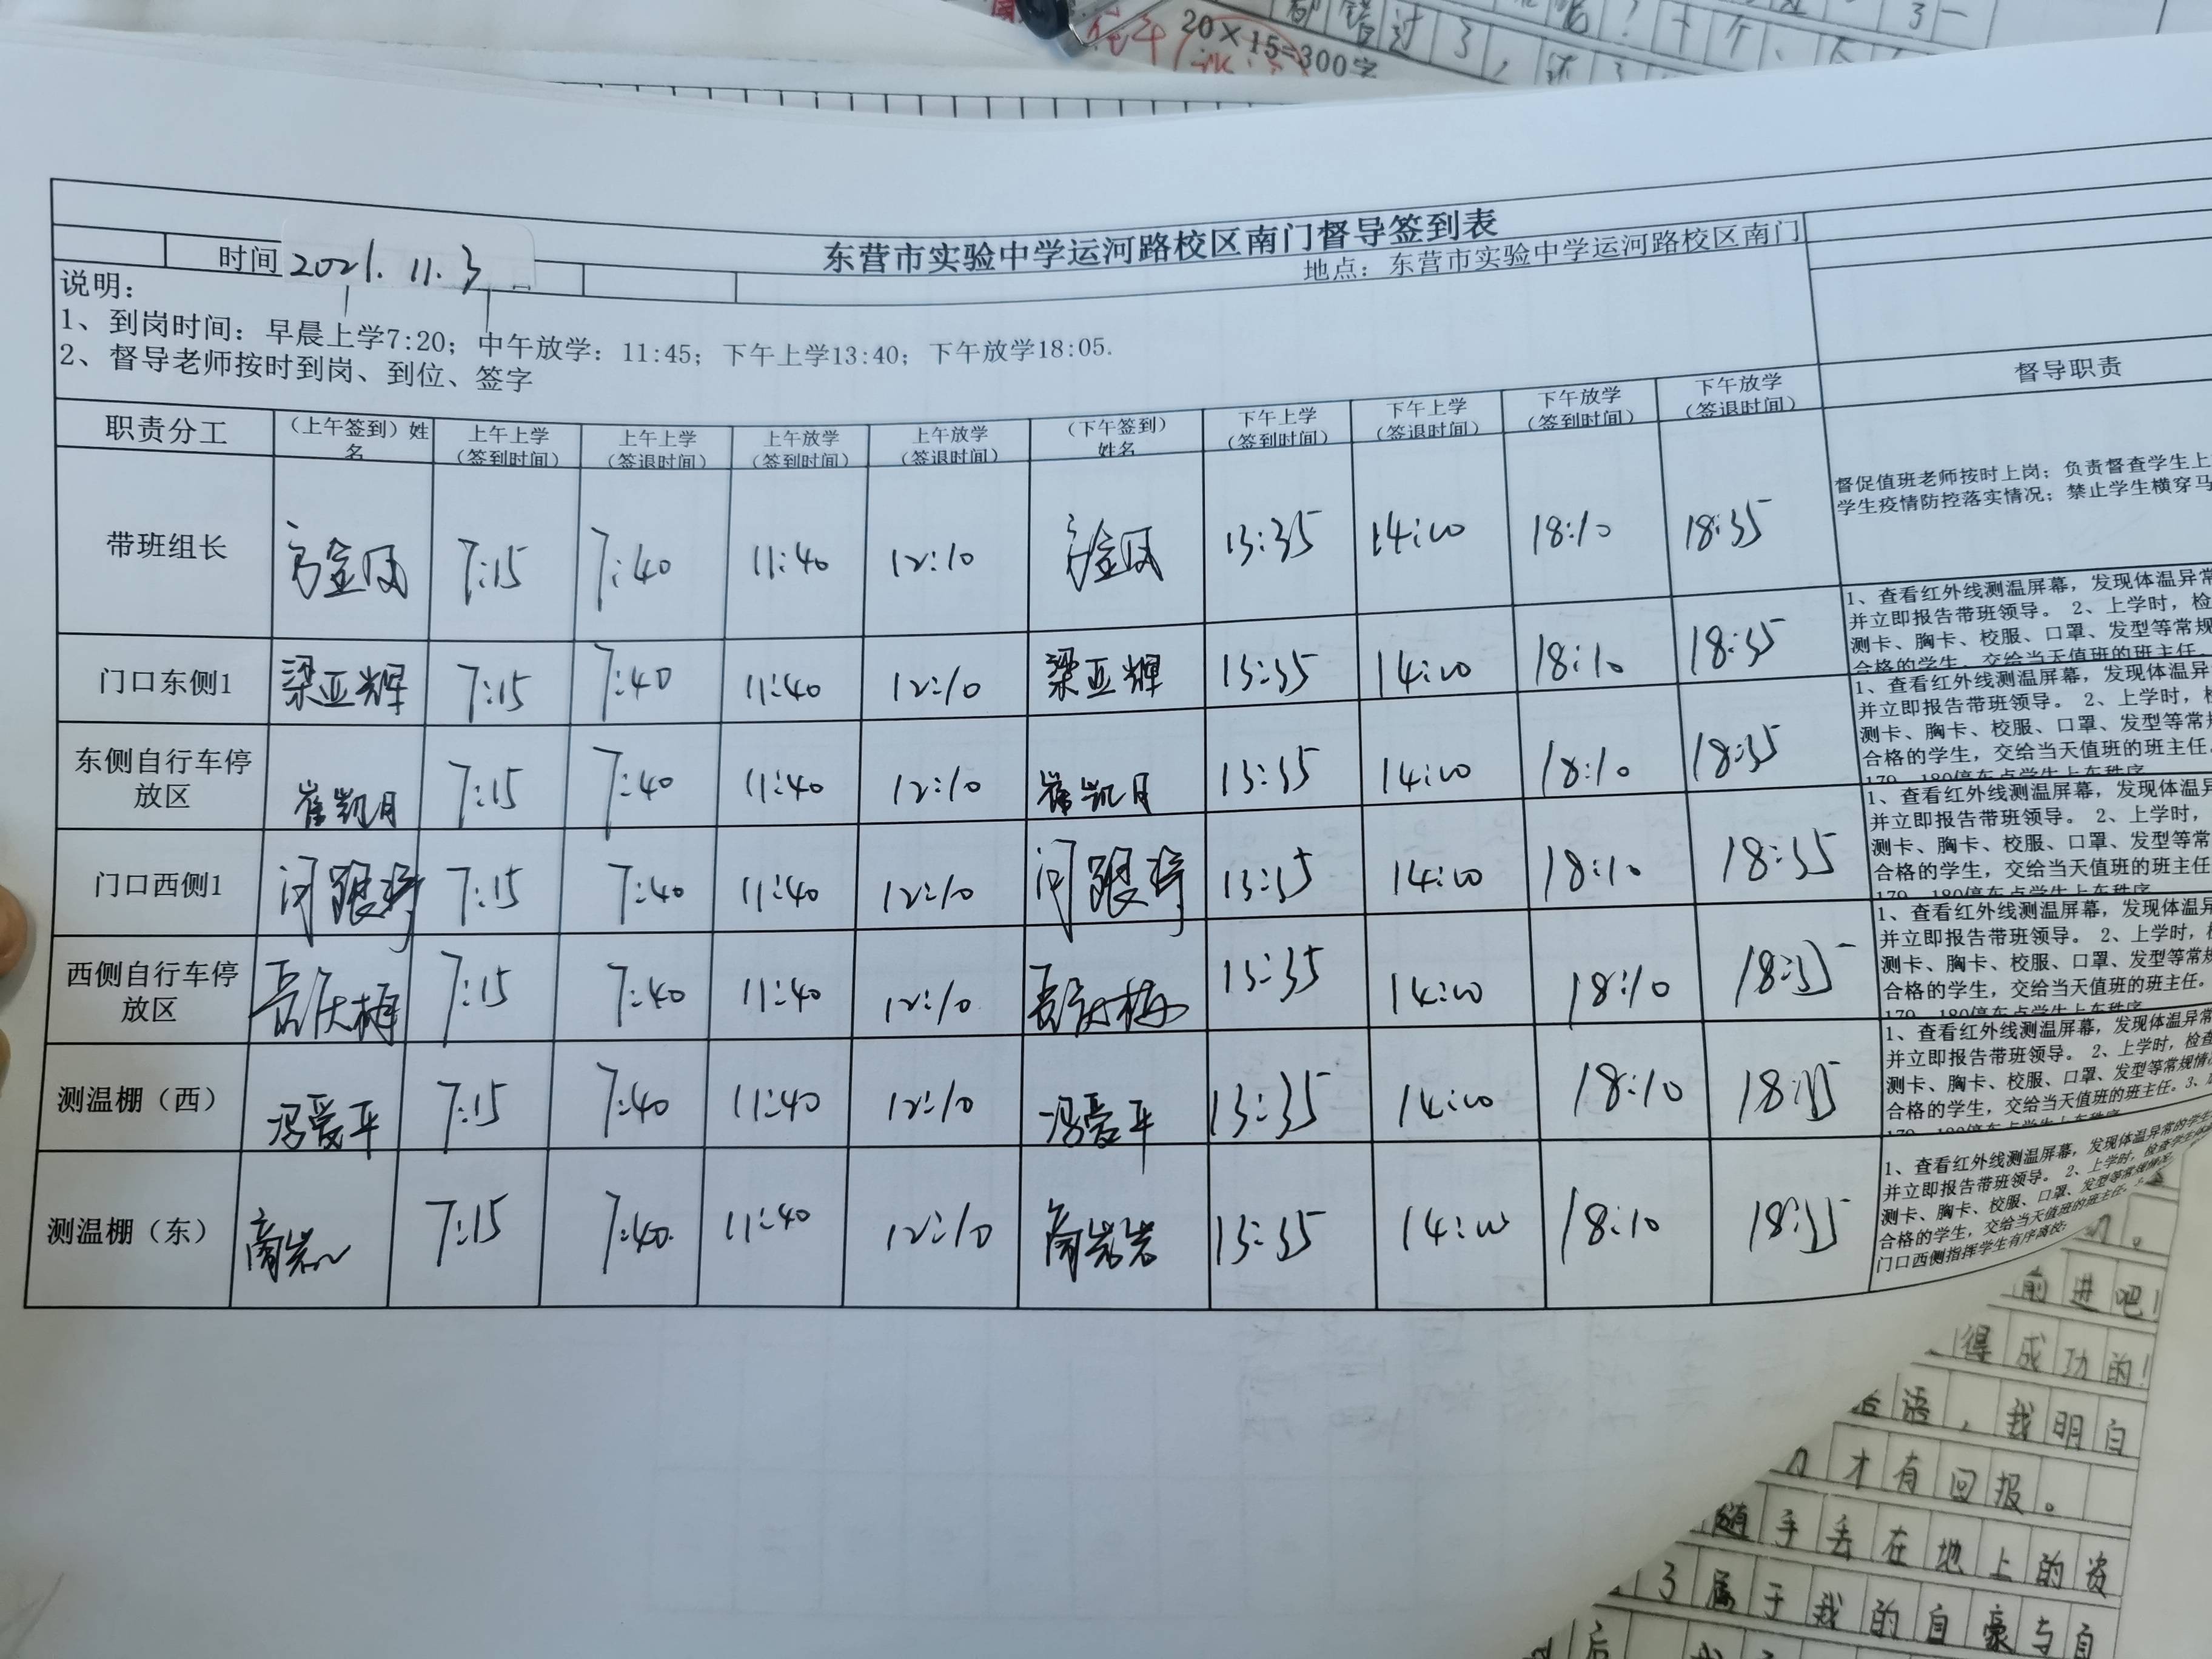 20×15=300字
东营市实验中学运河路校区南门督导签到表
时间 2021.11.3
地点：东营市实验中学运河路校区南门
说明：
1、到岗时间：早晨上学7:20；中午放学：11:45；下午上学13:40；下午放学18:05.
2、督导老师按时到岗、到位、签字
职责分工 （上午签到）姓名 上午上学（签到时间） 上午上学（签退时间） 上午放学（签到时间） 上午放学（签退时间） （下午签到）姓名 下午上学（签到时间） 下午上学（签退时间） 下午放学（签到时间） 下午放学（签退时间） 督导职责
带班组长 7:15 7:40 11:40 12:10 13:35 14:00 18:10 18:35
督促值班老师按时上岗；负责督查学生上
学生疫情防控落实情况；禁止学生横穿马
门口东侧1 梁亚辉 7:15 7:40 11:40 12:10 梁亚辉 13:35 14:00 18:10 18:35
1、查看红外线测温屏幕，发现体温异常
并立即报告带班领导。 2、上学时，检
测卡、胸卡、校服、口罩、发型等常规
合格的学生，交给当天值班的班主任.
东侧自行车停放区 崔凯月 7:15 7:40 11:40 12:10 崔凯月 13:35 14:00 18:10 18:35
1、查看红外线测温屏幕，发现体温异
并立即报告带班领导。 2、上学时，
测卡、胸卡、校服、口罩、发型等常
合格的学生，交给当天值班的班主任.
179、180停车点学生上车秩序
门口西侧1 7:15 7:40 11:40 12:10 13:35 14:00 18:10 18:35
1、查看红外线测温屏幕，发现体温异
并立即报告带班领导。 2、上学时，
测卡、胸卡、校服、口罩、发型等常
合格的学生，交给当天值班的班主任
179、180停车点学生上车秩序
西侧自行车停放区 7:15 7:40 11:40 12:10 13:35 14:00 18:10 18:35
1、查看红外线测温屏幕，发现体温异
并立即报告带班领导。 2、上学时，
测卡、胸卡、校服、口罩、发型等常规
合格的学生，交给当天值班的班主任。
179、180停车点学生上车秩序
测温棚（西） 冯爱平 7:15 7:40 11:40 12:10 冯爱平 13:35 14:00 18:10 18:35
1、查看红外线测温屏幕，发现体温异常
并立即报告带班领导。 2、上学时，检查
测卡、胸卡、校服、口罩、发型等常规情
合格的学生，交给当天值班的班主任。3、
179、180停车点学生上车秩序
测温棚（东） 7:15 7:40 11:40 12:10 商岩岩 13:35 14:00 18:10 18:35
1、查看红外线测温屏幕，发现体温异常的学生
并立即报告带班领导。 2、上学时，检查学生
测卡、胸卡、校服、口罩、发型等常规情况
合格的学生，交给当天值班的班主任.
门口西侧指挥学生有序离校.
前进吧！
得成功的！
话语，我明白
才有回报。
随手丢在地上的
了属于我的自豪与自
后